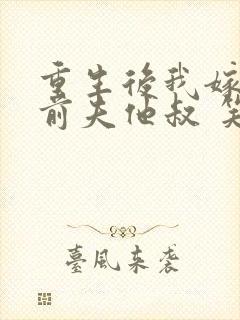 重生後我嫁
前夫他叔
臺風來襲